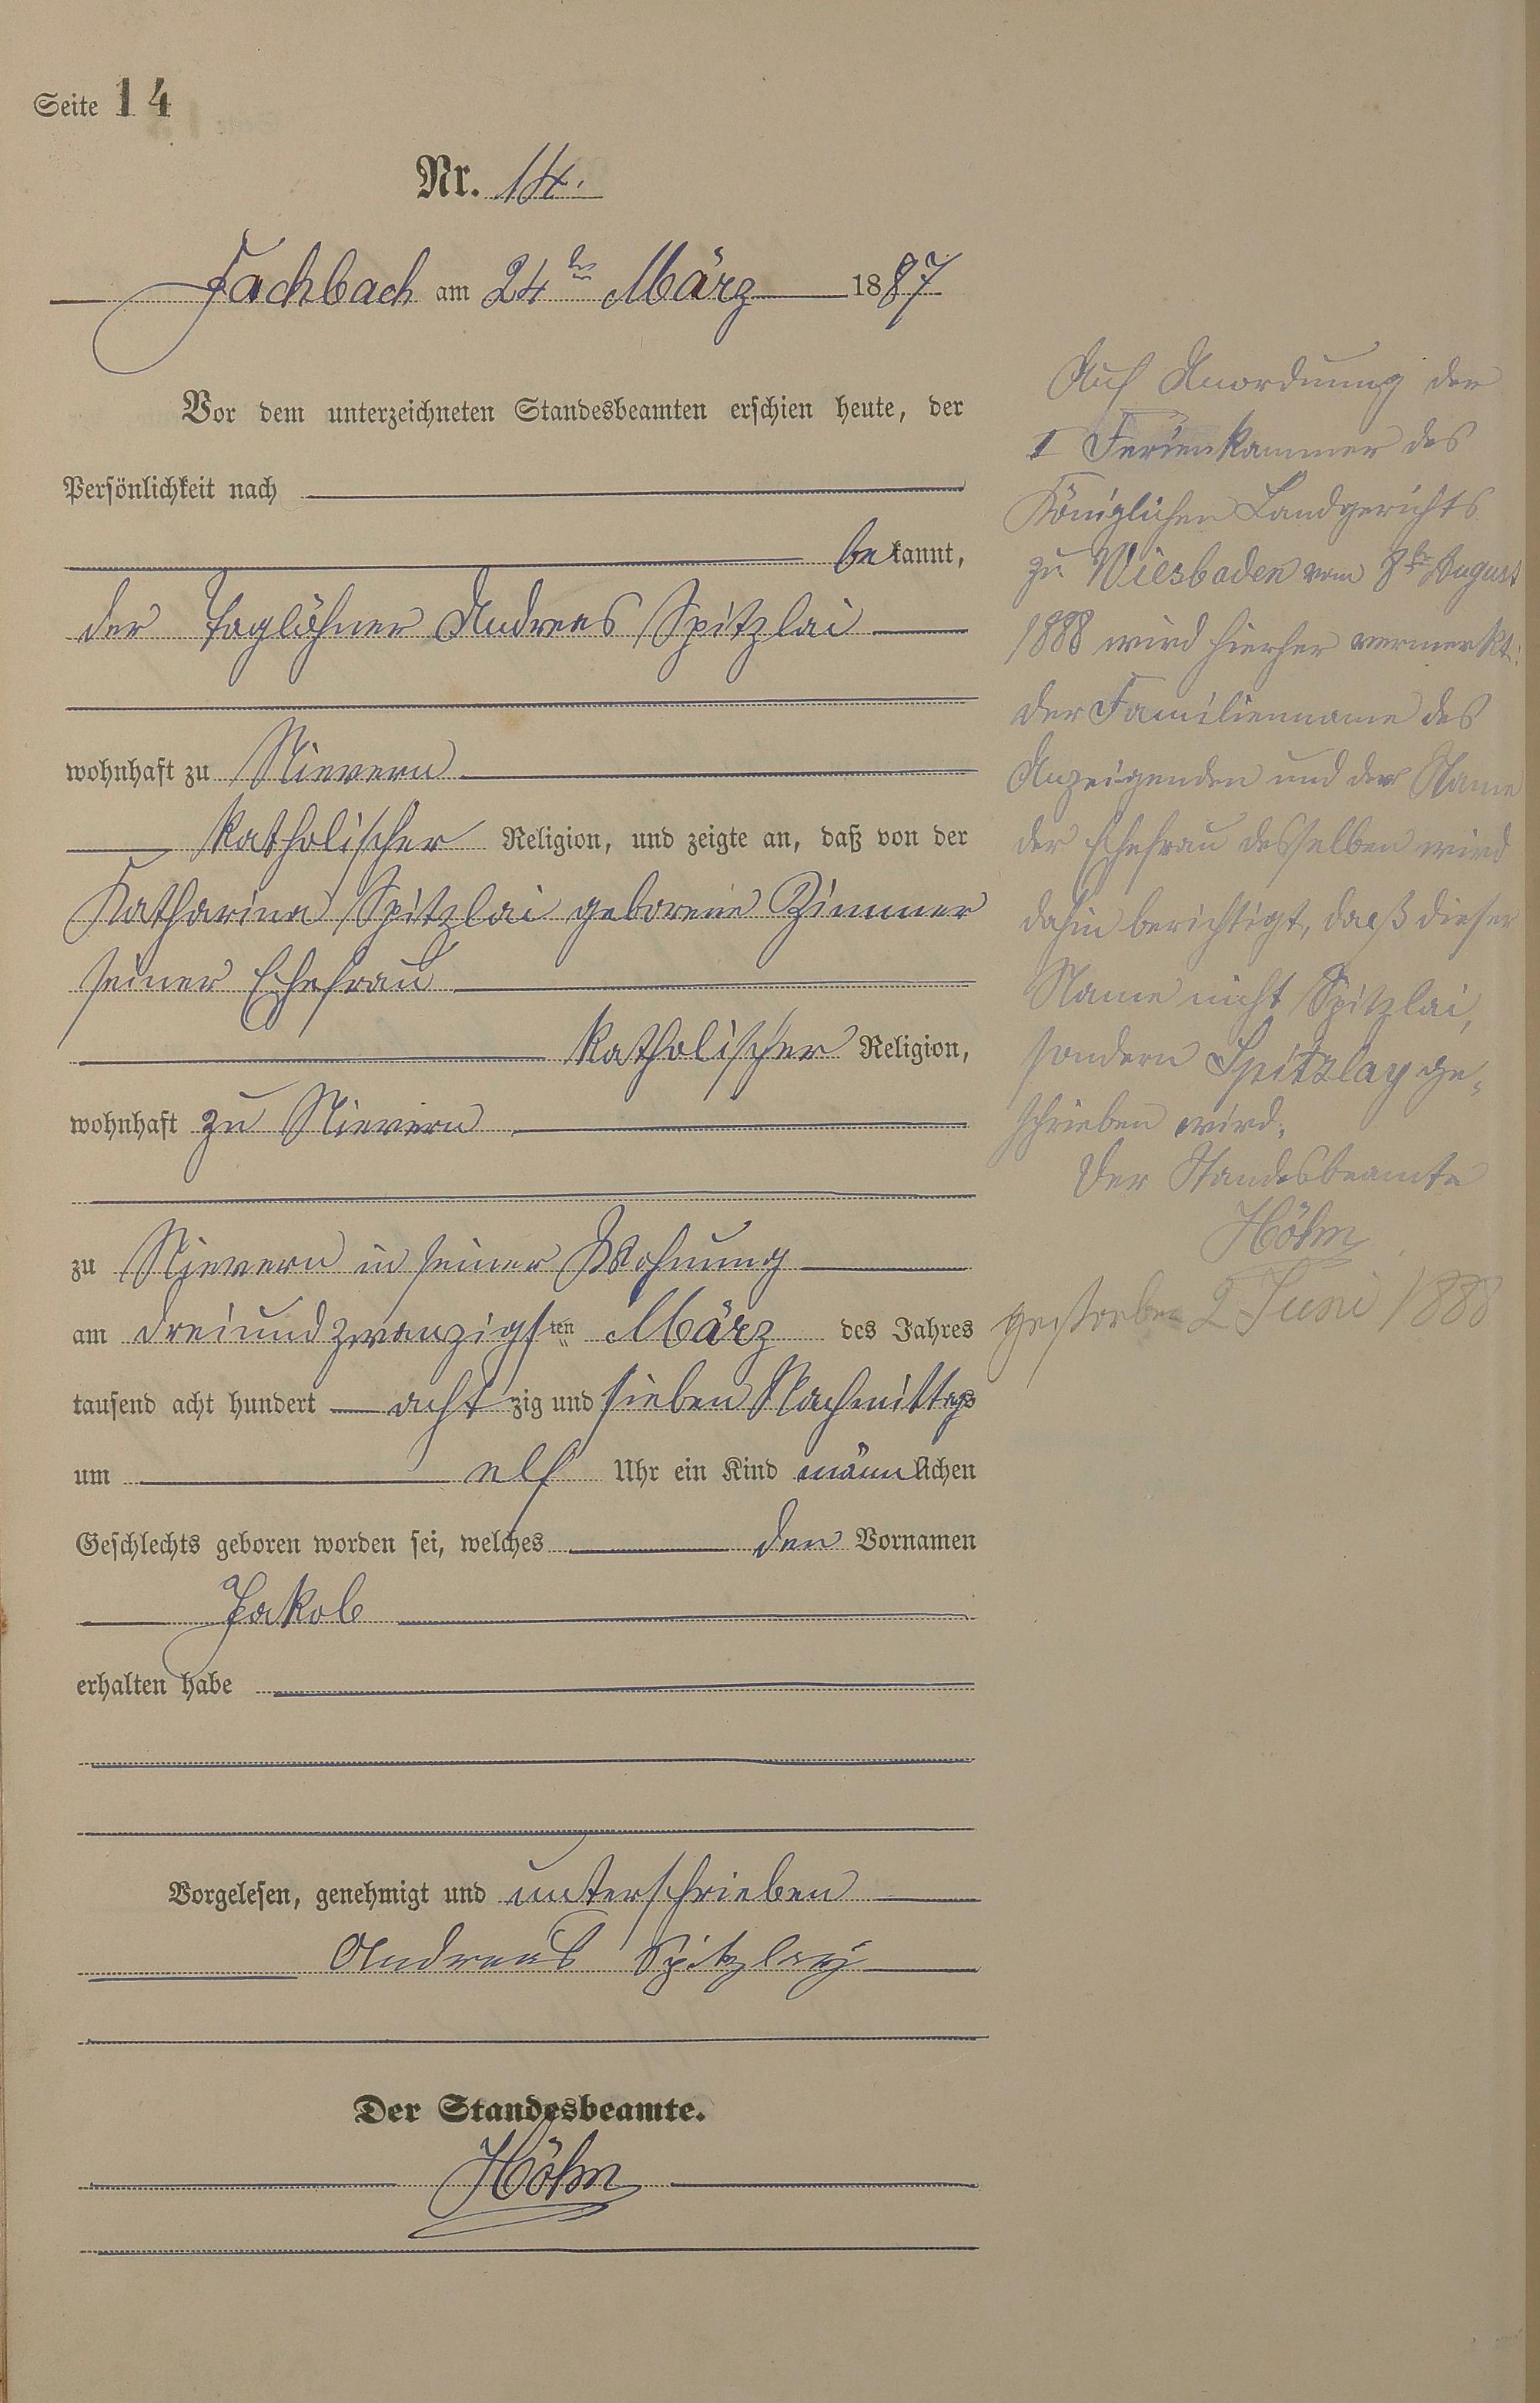 Seite 14
Nr. 14.
Fachbach am 24ten März 1887
Vor dem unterzeichneten Standesbeamten erschien heute, der
Persönlichkeit nach
bekannt,
der Taglöhner Andreas Spitzlai
wohnhaft zu Nievern
katholischer Religion, und zeigte an, daß von der
Katharina Spitzlai geborene Zimmer
seiner Ehefrau
katholischer Religion,
wohnhaft zu Nievern
zu Nievern in seiner Wohnung
am dreiundzwanzigsten März des Jahres
tausend acht hundert achtzig und sieben Nachmittags
um elf Uhr ein Kind männlichen
Geschlechts geboren worden sei, welches den Vornamen
Jakob
erhalten habe
Vorgelesen, genehmigt und unterschrieben
Andreas Spitzlay
Der Standesbeamte.
Höhn
Auf Anordnung der
I Ferienkammer des
Königlichen Landgerichts
zu Wiesbaden vom 8ten August
1888 wird hierher vermerkt:
der Familienname des
Anzeigenden und der Name
der Ehefrau desselben wird
dahin berichtigt, daß dieser
Name nicht Spitzlai,
sondern Spitzlay ge-
schrieben wird.
Der Standesbeamte
Höhn
gestorben 2 Juni 1888